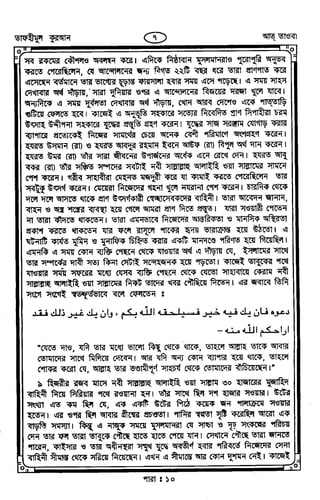 তাফহীমুল কুরআন ৭ আত তাওবা
সব রকমের কৌশলও অবলম্বন করে। এদিকে নিষ্ঠাবান মুসলমানরাও পুরোপুরি অনুভব
করতে পেরেছিলেন, যে আন্দোলনের জন্য বিগত ২২টি বছর ধরে তারা প্রাণপাত করে
এসেছেন বর্তমানে তার ভাগ্যের চূড়ান্ত ফায়সালা হবার সময় এসে পড়েছে। এ সময় সাহস
দেখাবার অর্থ দাঁড়ায়, সারা দুনিয়ার ওপর এ আন্দোলনের বিজয়ের দরজা খুলে যাবে।
অন্যদিকে এ সময় দুর্বলতা দেখাবার অর্থ দাঁড়ায়, খোদ আরব দেশেও একে পাততাড়ি
গুটিয়ে ফেলতে হবে। কাজেই এ অনুভূতি সহকারে সত্যের নিবেদিত প্রাণ সিপাহীরা চরম
উৎসাহ উদ্দীপনা সহকারে যুদ্ধের প্রস্তুতি গ্রহণ করেন। যুদ্ধের সাজ সরঞ্জাম যোগাড় করার
ব্যাপারে প্রত্যেকেই নিজের সামর্থের চেয়ে অনেক বেশী পরিমাণে অংশগ্রহণ করেন।
হযরত উসমান (রা) ও হযরত আবদুর রহমান ইবনে আউফ (রা) বিপুল অর্থ দান করেন।
হযরত উমর (রা) তাঁর সারা জীবনের উপার্জনের অর্ধেক এনে রেখে দেন। হযরত আবু
বকর (রা) তাঁর সঞ্চিত সম্পদের সবটাই নবী সাল্লাল্লাহু আলাইহি ওয়া সাল্লামের সামনে
পেশ করেন। গরীব সাহাবীরা মেহনত মজদুরী করে যা কামাই করতে পেরেছিলেন তার
সবটুকু উৎসর্গ করেন। মেয়েরা নিজেদের গহনা খুলে নযরানা পেশ করেন। চারদিক থেকে
দলে দলে আসতে থাকে প্রাণ উৎসর্গকারী স্বেচ্ছাসেবকদের বাহিনী। তারা আবেদন জানান,
বাহন ও অস্ত্র শস্ত্রের ব্যবস্থা হয়ে গেলে আমরা প্রাণ দিতে প্রস্তুত। যারা সওয়ারী পেতেন
না তারা কাঁদতে থাকতেন। তারা এমনভাবে নিজেদের আন্তরিকতা ও মানসিক অস্থিরতা
প্রকাশ করতে থাকতেন যার ফলে রাসূলে পাকের হৃদয় ভারাক্রান্ত হয়ে উঠতো। এ
ঘটনাটি কার্যত মুমিন ও মুনাফিক চিহ্নিত করার একটি মানদণ্ডে পরিণত হয়ে গিয়েছিল।
এমনকি এ সময় কোন ব্যক্তি পেছনে থেকে যাওয়ার অর্থ এ দাঁড়ায় যে, ইসলামের সাথে
তার সম্পর্কের দাবী সত্য কিনা সেটাই সন্দেহজনক হয়ে পড়তো। কাজেই তাবুকের পথে
যাওয়ার সময় সফরের মধ্যে যেসব ব্যক্তি পেছনে থেকে যেতো সাহাবায়ে কেরাম নবী
সাল্লাল্লাহু আলাইহি ওয়া সাল্লামের নিকট তাদের খবর পৌঁছিয়ে দিতেন। এর জবাবে তিনি
সংগে সংগেই স্বতস্ফূর্তভাবে বলে ফেলতেন :
دعوه فان يك فيه خير فسيلحقه الله بكم ، وان يك غير ذلك فقد
اراحكم الله منه -
"যেতে দাও, যদি তার মধ্যে ভালো কিছু থেকে থাকে, তাহলে আল্লাহ তাকে আবার
তোমাদের সাথে মিলিয়ে দেবেন। আর যদি অন্য কোন ব্যাপার হয়ে থাকে, তাহলে
শোকর করো যে, আল্লাহ তার ভণ্ডামীপূর্ণ সাহচর্য থেকে তোমাদের বাঁচিয়েছেন।"
৯ হিজরীর রজব মাসে নবী সাল্লাল্লাহু আলাইহি ওয়া সাল্লাম ৩০ হাজারের মুজাহিদ
বাহিনী নিয়ে সিরিয়ার পথে রওয়ানা হন। তাঁর সাথে ছিল দশ হাজার সওয়ার। উটের
সংখ্যা এত কম ছিল যে, এক একটি উটের পিঠে কয়েক জন পালাক্রমে সওয়ার
হতেন। এর ওপর ছিল আবার গ্রীষ্মের প্রচণ্ডতা। পানির স্বল্পতা সৃষ্টি করেছিল আরো এক
বাড়তি সমস্যা। কিন্তু এ নাজুক সময়ে মুসলমানরা যে সাচ্চা ও দৃঢ় সংকল্পের পরিচয়
দেন তার ফল তারা তাবুকে পৌঁছে হাতে হাতে পেয়ে যান। সেখানে পৌঁছে তারা জানতে
পারেন, কাইসার ও তার অধীনস্থরা সম্মুখ যুদ্ধে অবতীর্ণ হবার পরিবর্তে নিজেদের সেনা
বাহিনী সীমান্ত থেকে সরিয়ে নিয়েছেন। এখন এ সীমান্তে আর কোন দুশমন নেই। কাজেই
পারা : ১০